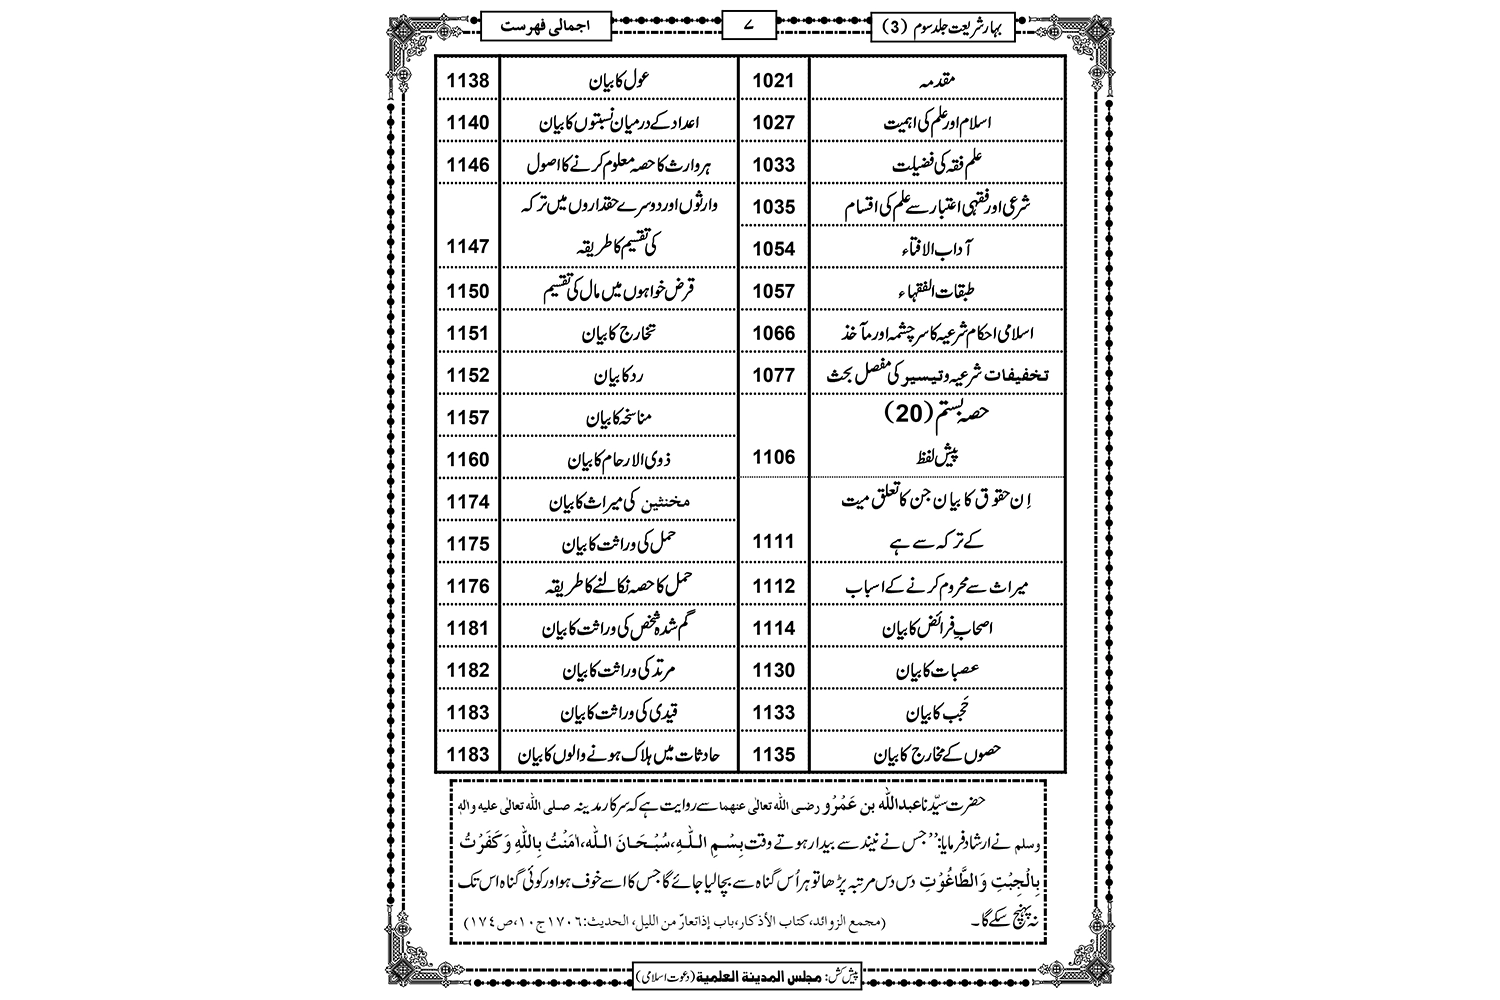 بہار شریعت جلد سوم (3)
۷
اجمالی فہرست
مقدمہ 1021
اسلام اور علم کی اہمیت 1027
علم فقہ کی فضیلت 1033
شرعی اور فقہی اعتبار سے علم کی اقسام 1035
آداب الافتاء 1054
طبقات الفقہاء 1057
اسلامی احکام شرعیہ کا سرچشمہ اور مآخذ 1066
تخفیفات شرعیہ و تیسیر کی مفصل بحث 1077
حصہ بستم (20)
پیش لفظ 1106
اِن حقوق کا بیان جن کا تعلق میت
کے ترکہ سے ہے 1111
میراث سے محروم کرنے کے اسباب 1112
اصحابِ فرائض کا بیان 1114
عصبات کا بیان 1130
حَجب کا بیان 1133
حصوں کے مخارج کا بیان 1135
عول کا بیان 1138
اعداد کے درمیان نسبتوں کا بیان 1140
ہر وارث کا حصہ معلوم کرنے کا اصول 1146
وارثوں اور دوسرے حقداروں میں ترکہ
کی تقسیم کا طریقہ 1147
قرض خواہوں میں مال کی تقسیم 1150
تخارج کا بیان 1151
رد کا بیان 1152
مناسخہ کا بیان 1157
ذوی الارحام کا بیان 1160
مخنثین کی میراث کا بیان 1174
حمل کی وراثت کا بیان 1175
حمل کا حصہ نکالنے کا طریقہ 1176
گم شدہ شخص کی وراثت کا بیان 1181
مرتد کی وراثت کا بیان 1182
قیدی کی وراثت کا بیان 1183
حادثات میں ہلاک ہونے والوں کا بیان 1183
حضرت سیّدنا عبداللّٰہ بن عَمْرُو رضی اللہ تعالٰی عنھما سے روایت ہے کہ سرکار مدینہ صلی اللہ تعالٰی علیہ والہٖ
وسلم نے ارشاد فرمایا: ’’جس نے نیند سے بیدار ہوتے وقت بِسْمِ اللّٰہِ، سُبْحَانَ اللّٰہ، اٰمَنْتُ بِاللّٰہِ وَ کَفَرْتُ
بِالْجِبْتِ وَالطَّاغُوْتِ دس دس مرتبہ پڑھا تو ہر اُس گناہ سے بچالیا جائے گا جس کا اسے خوف ہو اور کوئی گناہ اس تک
نہ پہنچ سکے گا۔ (مجمع الزوائد، کتاب الأذکار، باب إذاتعارّ من اللیل، الحدیث: ١٧٠٦٠ج١٠، ص١٧٤)
پیش کش: مجلس المدینۃ العلمیۃ (دعوت اسلامی)